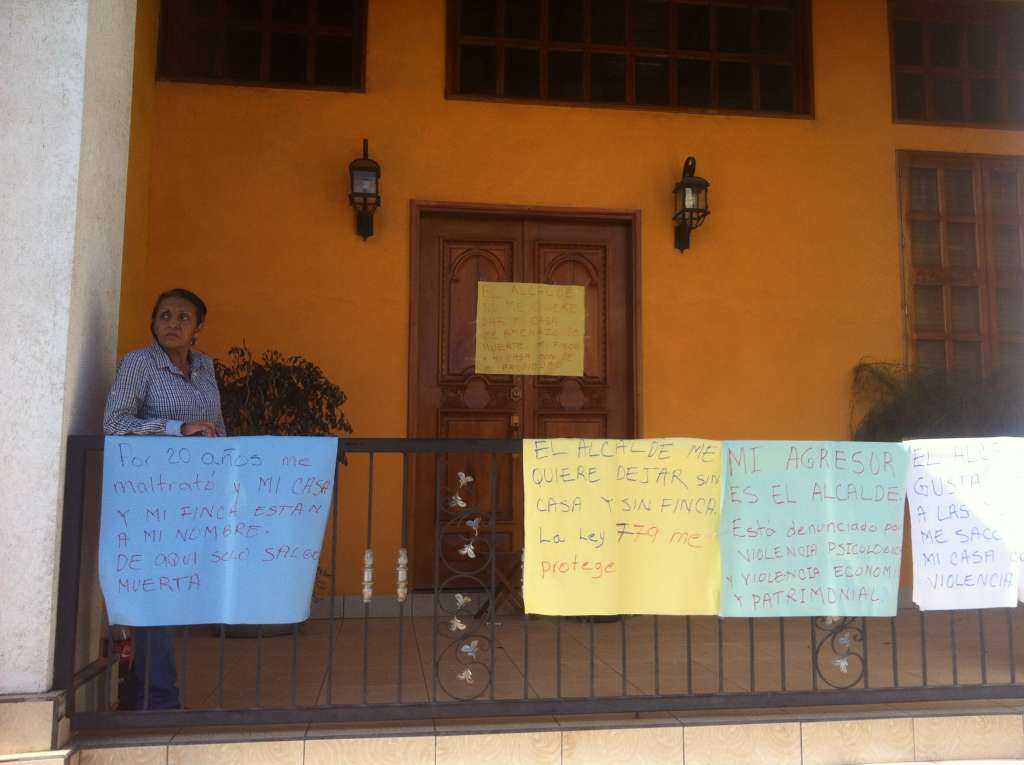 EL ALCALDE
NO ME QUIERE
DAR MI CASA
ME AMENAZO DE
MUERTE. MI FINCA
Y MI CASA SON DE
MI
Por 20 años me
maltrató y MI CASA
Y MI FINCA ESTAN
A MI NOMBRE.
DE AQUI SOLO SALGO
MUERTA
EL ALCALDE ME
QUIERE DEJAR SIN
CASA Y SIN FINCA.
La Ley 779 me
protege
MI AGRESOR
ES EL ALCALDE.
Está denunciado por
VIOLENCIA PSICOLOGICA
Y VIOLENCIA ECONOMI
Y PATRIMONIAL.
EL ALC
GUSTA
A LAS
ME SACO
MI CASA CO
VIOLENCIA